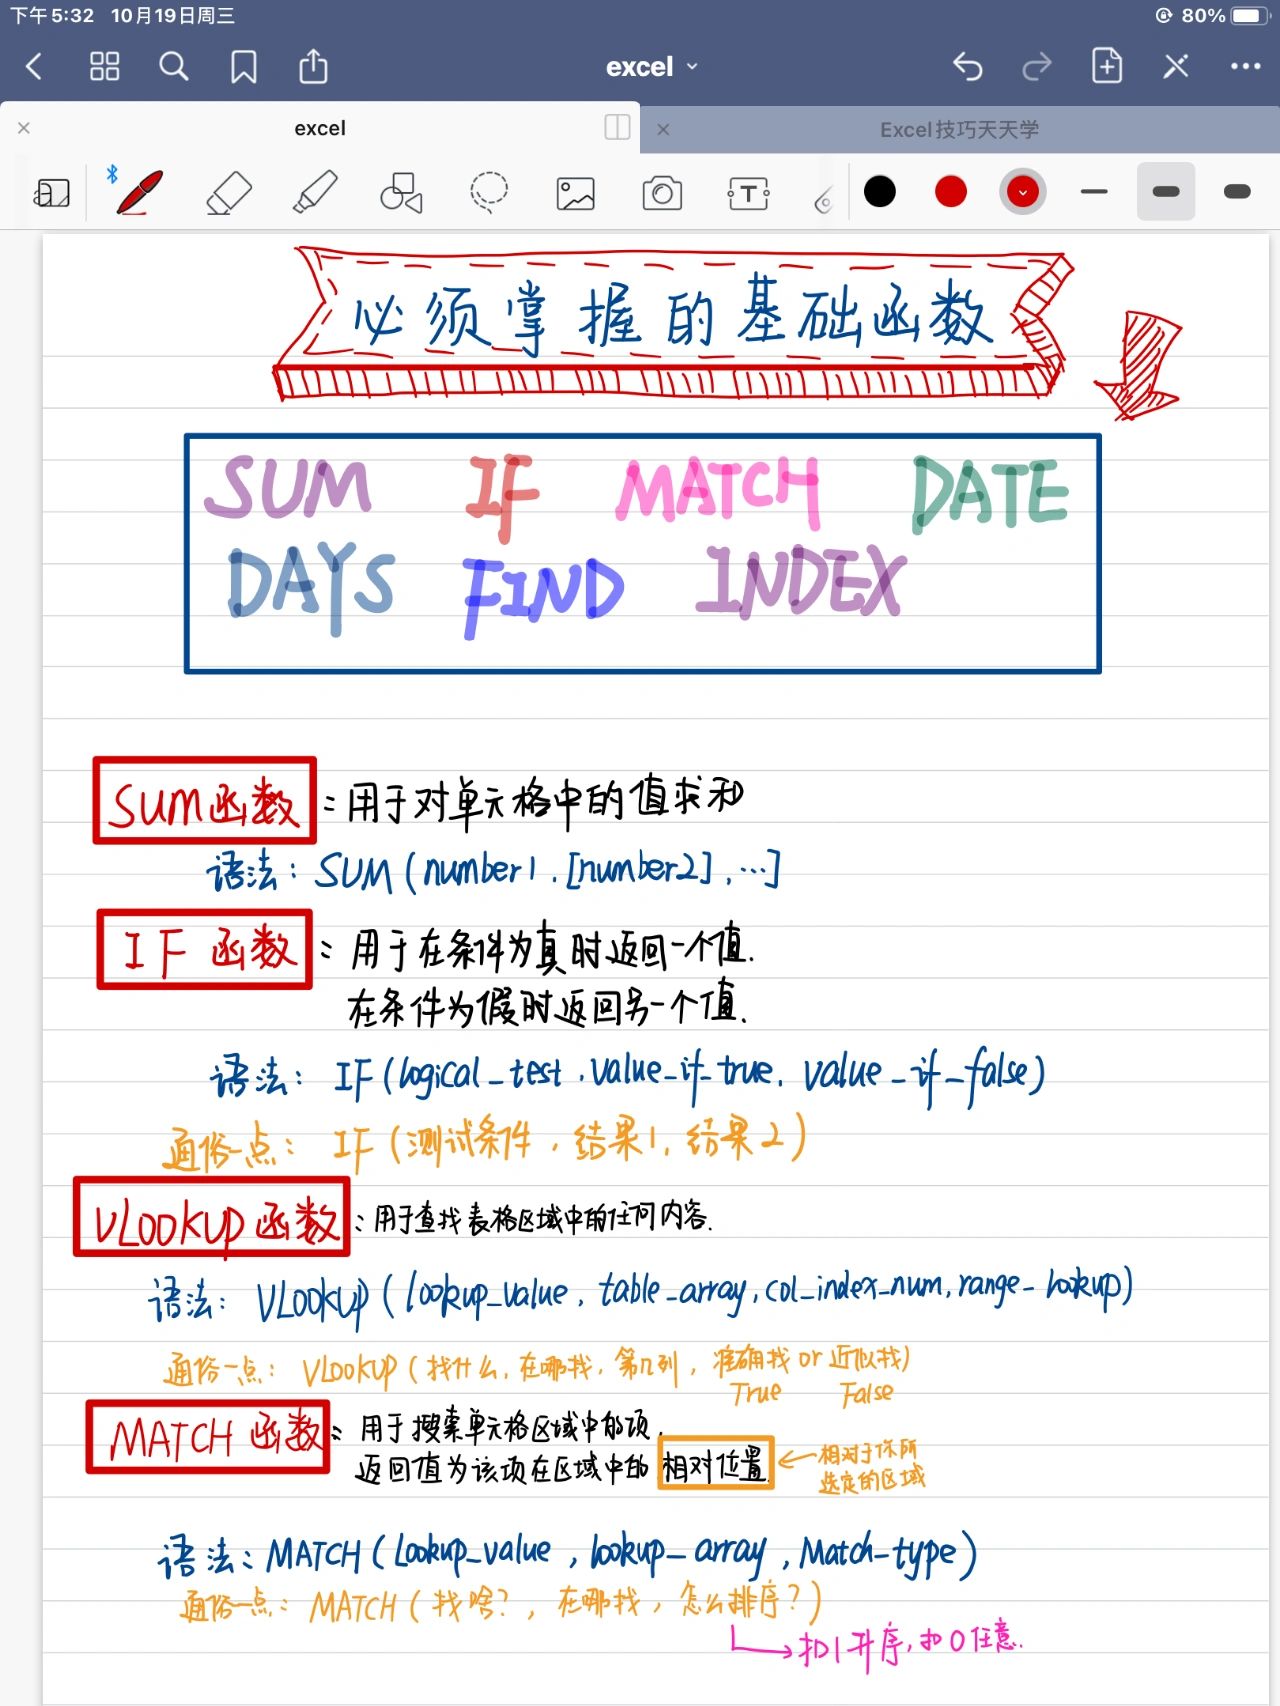 下午5:32 10月19日周三
80%
excel
excel
Excel技巧天天学
必须掌握的基础函数
SUM IF MATCH DATE
DAYS FIND INDEX
SUM函数:用于对单元格中的值求和
语法: SUM(number1,[number2],…]
IF 函数:用于在条件为真时返回一个值.
在条件为假时返回另一个值.
语法: IF(logical_test,value_if_true, value_if_false)
通俗一点: IF(测试条件,结果1,结果2)
VLOOKUP函数:用于查找表格区域中的任何内容.
语法: VLOOKUP(lookup_value, table_array,col_index_num,range_lookup)
通俗一点: VLOOKUP(找什么,在哪找,第几列,准确找or近似找)
True False
MATCH 函数: 用于搜索单元格区域中的项,
返回值为该项在区域中的相对位置.
相对于你所
选定的区域
语法: MATCH(Lookup_value, lookup_array, Match-type)
通俗一点: MATCH(找啥?, 在哪找, 怎么排序?)
扣1升序,扣0任意.